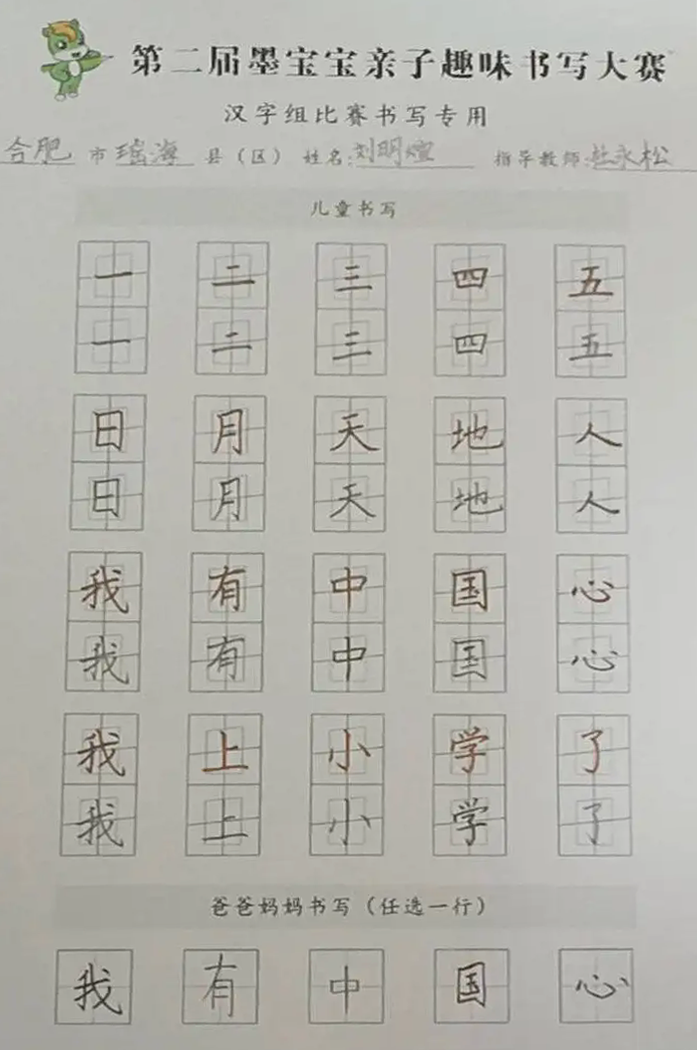 第二届墨宝宝亲子趣味书写大赛
汉字组比赛书写专用
合肥 市 瑶海 县（区） 姓名：刘明煊 指导教师：杜永松
儿童书写
一 二 三 四 五
一 二 三 四 五
日 月 天 地 人
日 月 天 地 人
我 有 中 国 心
我 有 中 国 心
我 上 小 学 了
我 上 小 学 了
爸爸妈妈书写（任选一行）
我 有 中 国 心